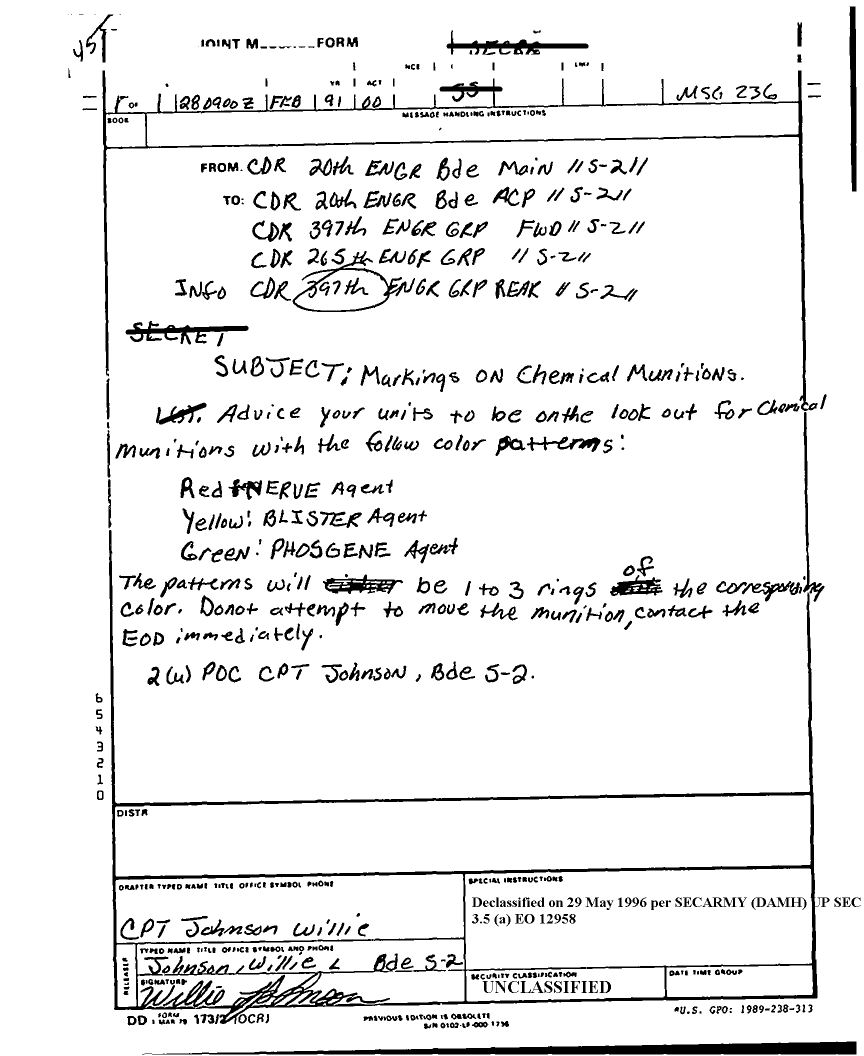 45
JOINT M FORM SECRE
NCE LMF
YR ACT
1 OF 1 280900Z FEB 91 OO SS MSG 236
BOOK MESSAGE HANDLING INSTRUCTIONS
FROM. CDR 20th ENGR Bde Main // S-2//
TO: CDR 20th ENGR Bde ACP // S-2//
CDR 397th ENGR GRP FWD // S-2//
CDR 265th ENGR GRP // S-2//
INFO CDR 397th ENGR GRP REAR // S-2//
SECRET
SUBJECT; Markings ON Chemical Munitions.
Advice your units to be onthe look out for Chemical
munitions with the follow color patterns:
Red NERVE Agent
Yellow: BLISTER Agent
Green: PHOSGENE Agent
of
The patterns will either be 1 to 3 rings the corresponding
Color. Donot attempt to move the munition, contact the
EOD immediately.
2(u) POC CPT Johnson, Bde S-2.
6
5
4
3
2
1
0
DISTR
DRAFTER TYPED NAME TITLE OFFICE SYMBOL PHONE
CPT Johnson Willie
SPECIAL INSTRUCTIONS
Declassified on 29 May 1996 per SECARMY (DAMH) UP SEC
3.5 (a) EO 12958
RELEASER
TYPED NAME TITLE OFFICE SYMBOL AND PHONE
Johnson, Willie L Bde S-2
SIGNATURE
Willie Johnson
SECURITY CLASSIFICATION
UNCLASSIFIED
DATE TIME GROUP
DD FORM 1 MAR 79 173/2 (OCR)
PREVIOUS EDITION IS OBSOLETE
S/N 0102-LF-000 1736
*U.S. GPO: 1989-238-313